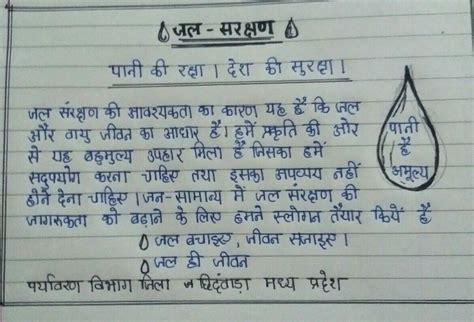 जल - सरक्षण
पानी की रक्षा । देश की सुरक्षा ।
जल संरक्षण की आवश्यकता का कारण यह हैं कि जल
और वायु जीवन का आधार हैं। हमें प्रकृति की ओर
से यह बहुमूल्य उपहार मिला हैं जिसका हमें
सदुपयोग करना चाहिए तथा इसका अपव्यय नहीं
होने देना चाहिए । जन - सामान्य में जल संरक्षण की
जागरुकता को बढ़ाने के लिए हमने स्लोगन तैयार कियें हैं
जल बचाइए, जीवन सजाइए ।
जल ही जीवन
पर्यावरण विभाग जिला छिंदवाड़ा मध्य प्रदेश
पानी
हैं
अमूल्य